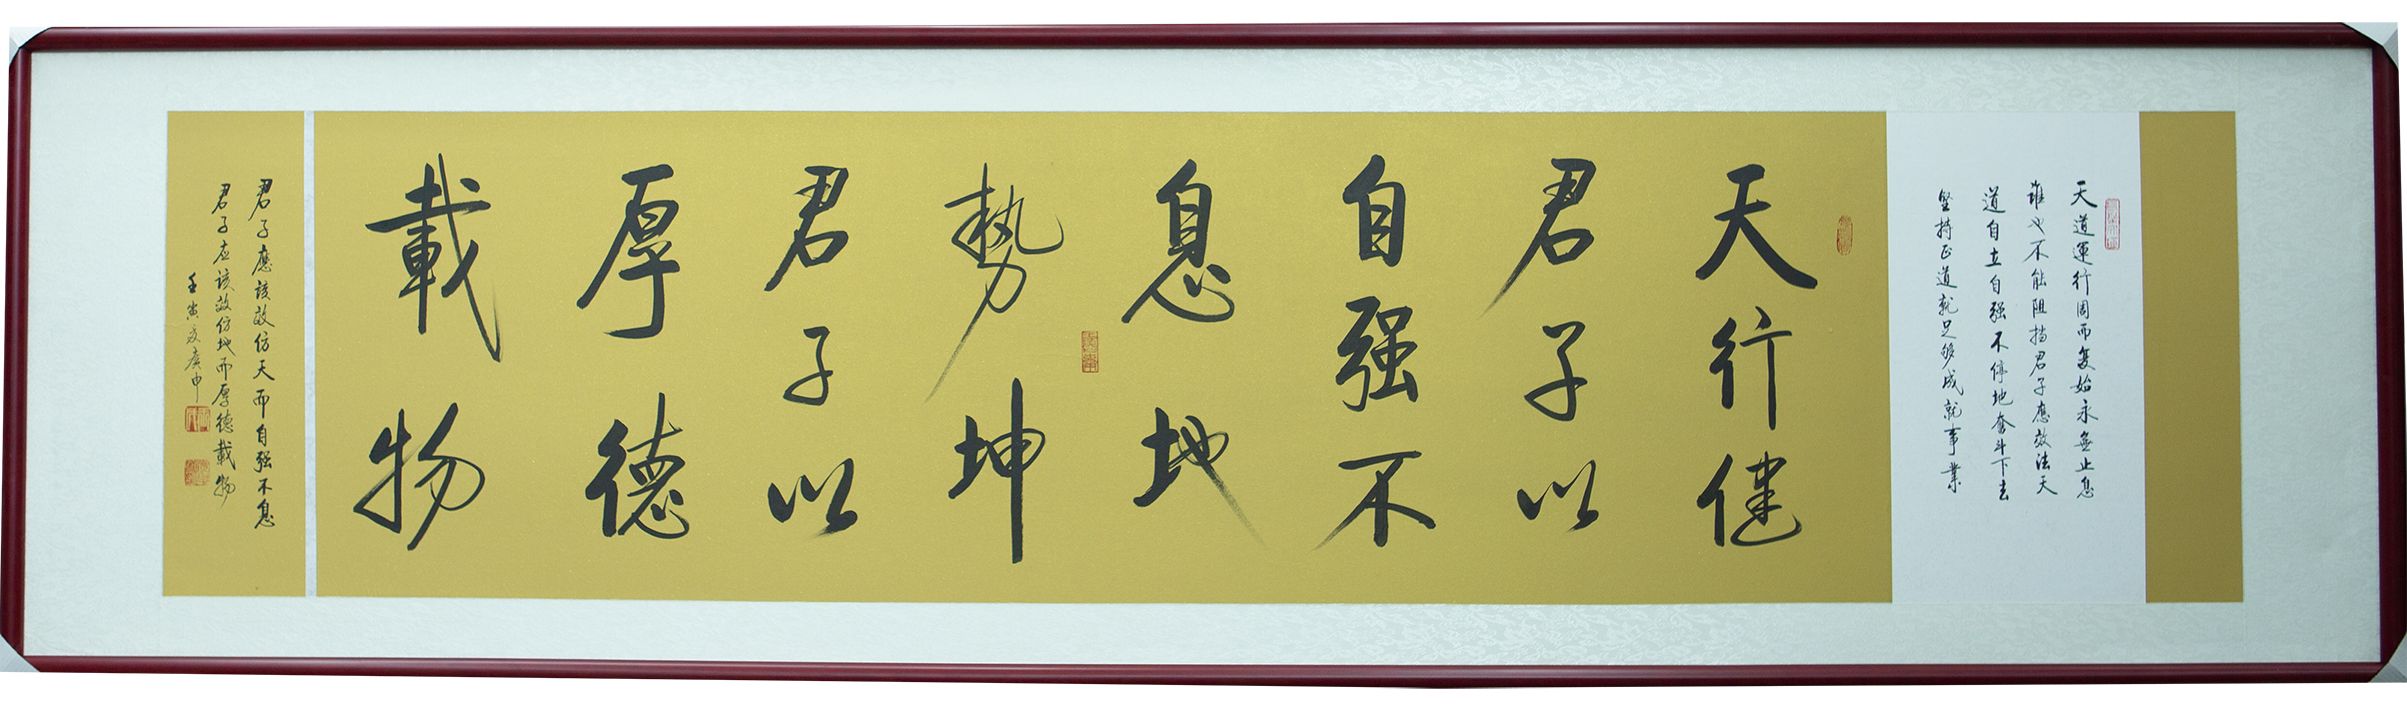 天道運行周而复始永無止息
誰也不能阻挡君子應效法天
道自立自强不停地奋斗下去
坚持正道就足够成就事業
天行健
君子以
自强不
息地
勢坤
君子以
厚德
載物
君子應该效仿天而自强不息
君子应该效仿地而厚德載物
壬寅夏庚申